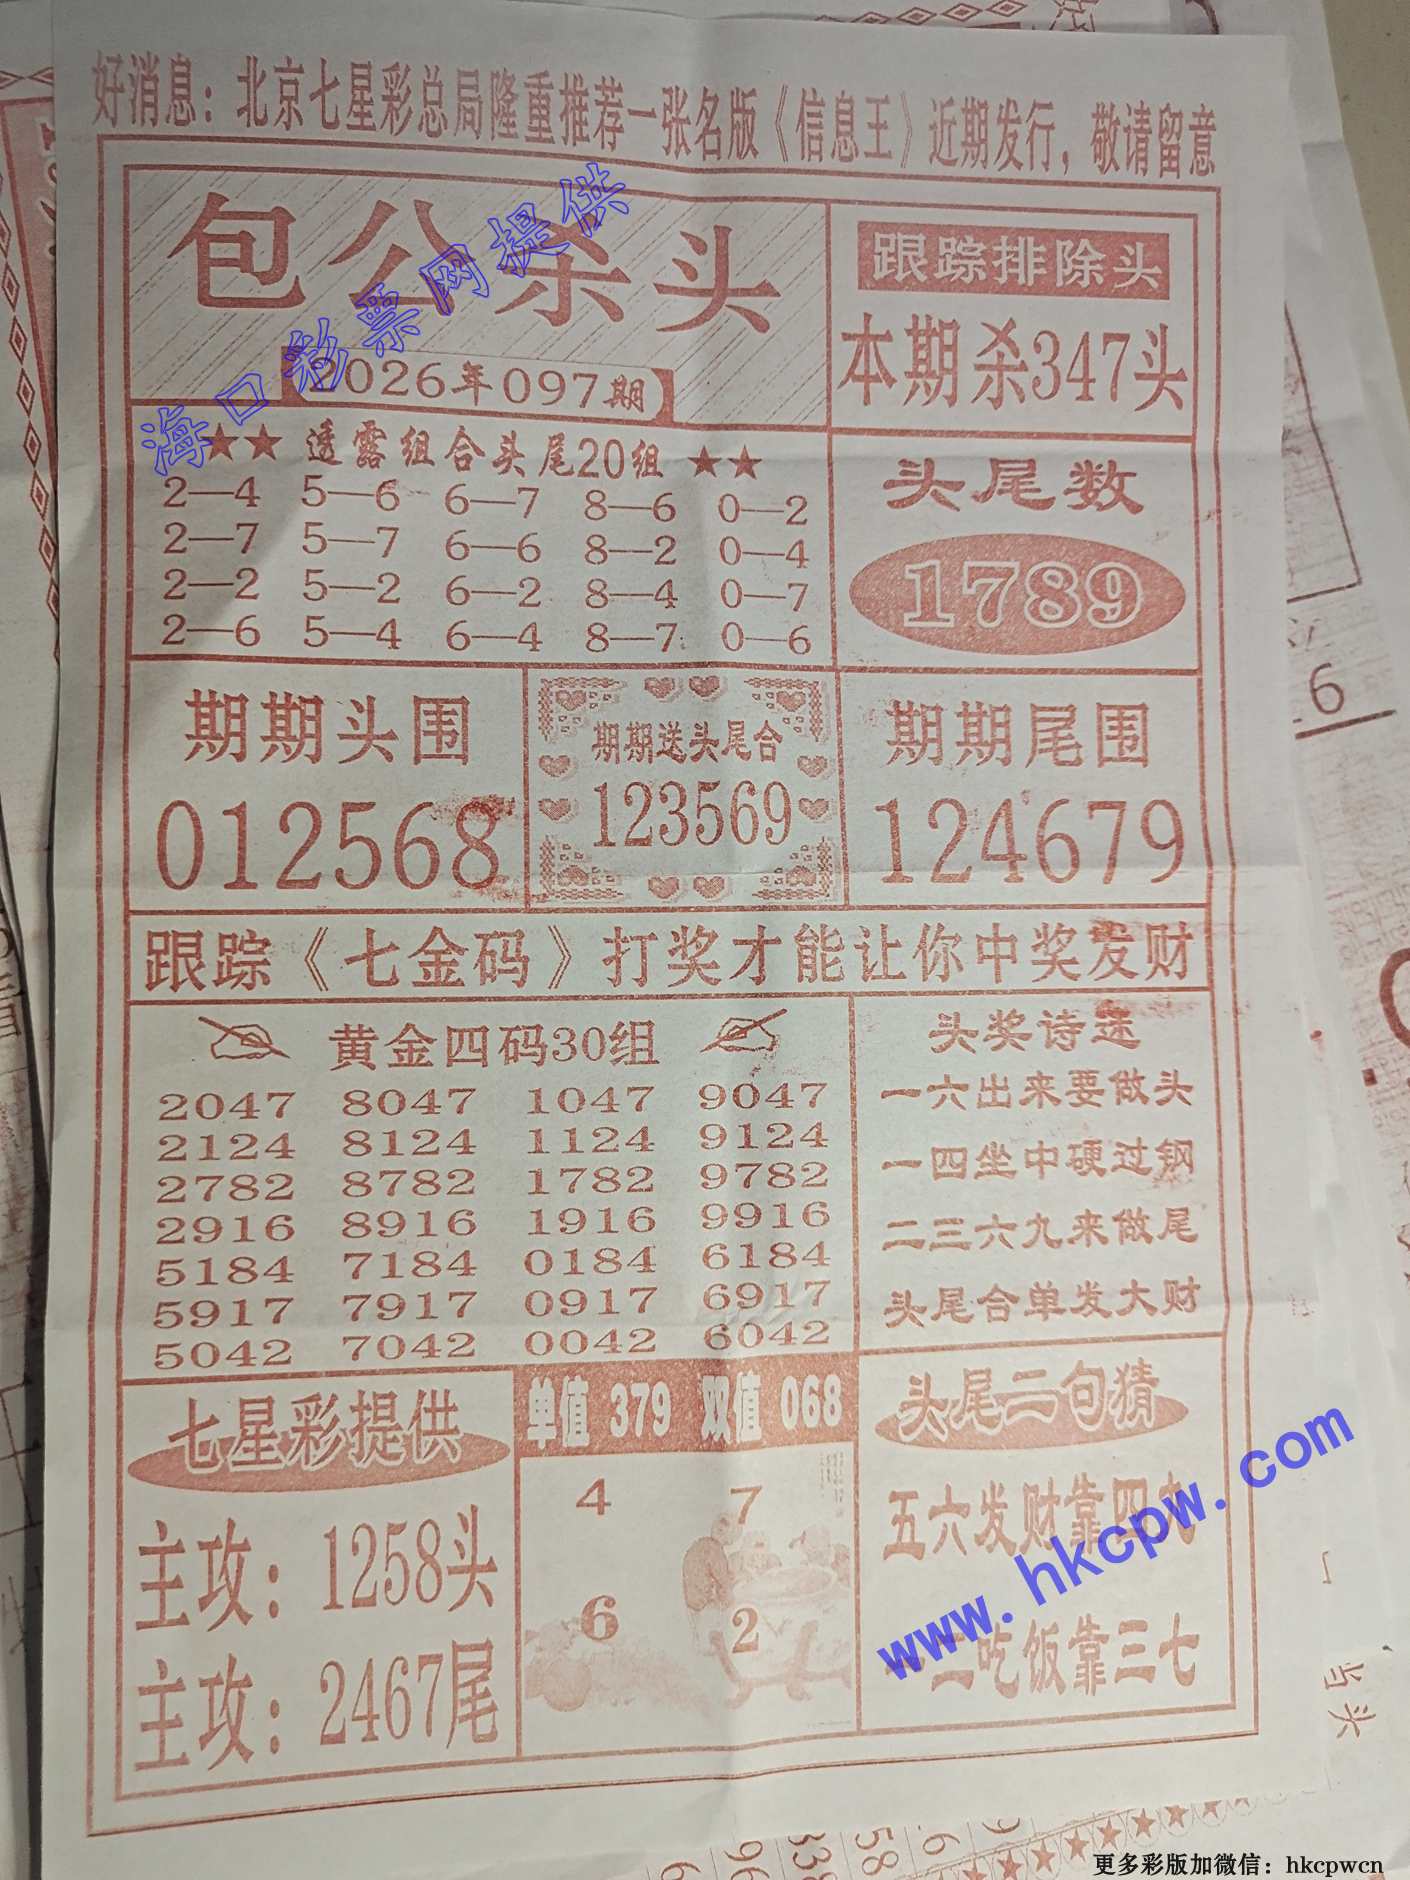 好消息：北京七星彩总局隆重推荐一张名版《信息王》近期发行，敬请留意
包公杀头
2026年097期
海口彩票网提供
跟踪排除头
本期杀347头
★★ 透露组合头尾20组 ★★
2—4 5—6 6—7 8—6 0—2
2—7 5—7 6—6 8—2 0—4
2—2 5—2 6—2 8—4 0—7
2—6 5—4 6—4 8—7 0—6
头尾数
1789
期期头围
012568
期期送头尾合
123569
期期尾围
124679
跟踪《七金码》打奖才能让你中奖发财
黄金四码30组
2047 8047 1047 9047
2124 8124 1124 9124
2782 8782 1782 9782
2916 8916 1916 9916
5184 7184 0184 6184
5917 7917 0917 6917
5042 7042 0042 6042
头奖诗迷
一六出来要做头
一四坐中硬过钢
二三六九来做尾
头尾合单发大财
七星彩提供
主攻：1258头
主攻：2467尾
单值 379 双值 068
4 7
6 2
头尾二句猜
五六发财靠四九
一二吃饭靠三七
www.hkcpw.com
6
当头
更多彩版加微信：hkcpwcn